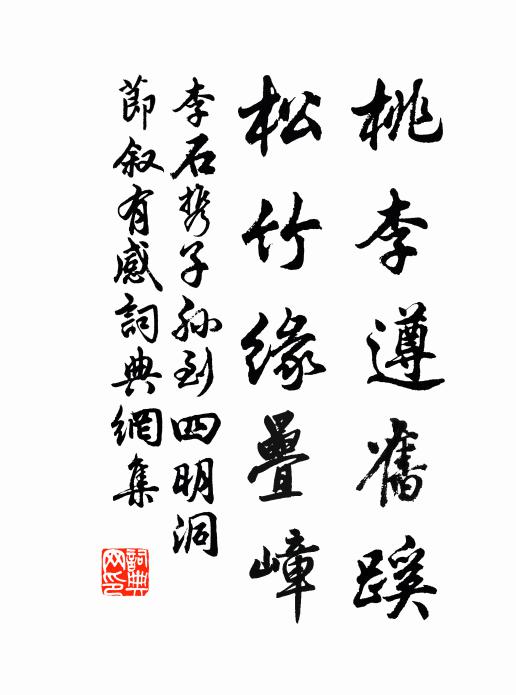 桃李遵舊蹊
松竹緣疊嶂
李石携子孫到四明洞
節叙有感詞典網集
詞典
网印